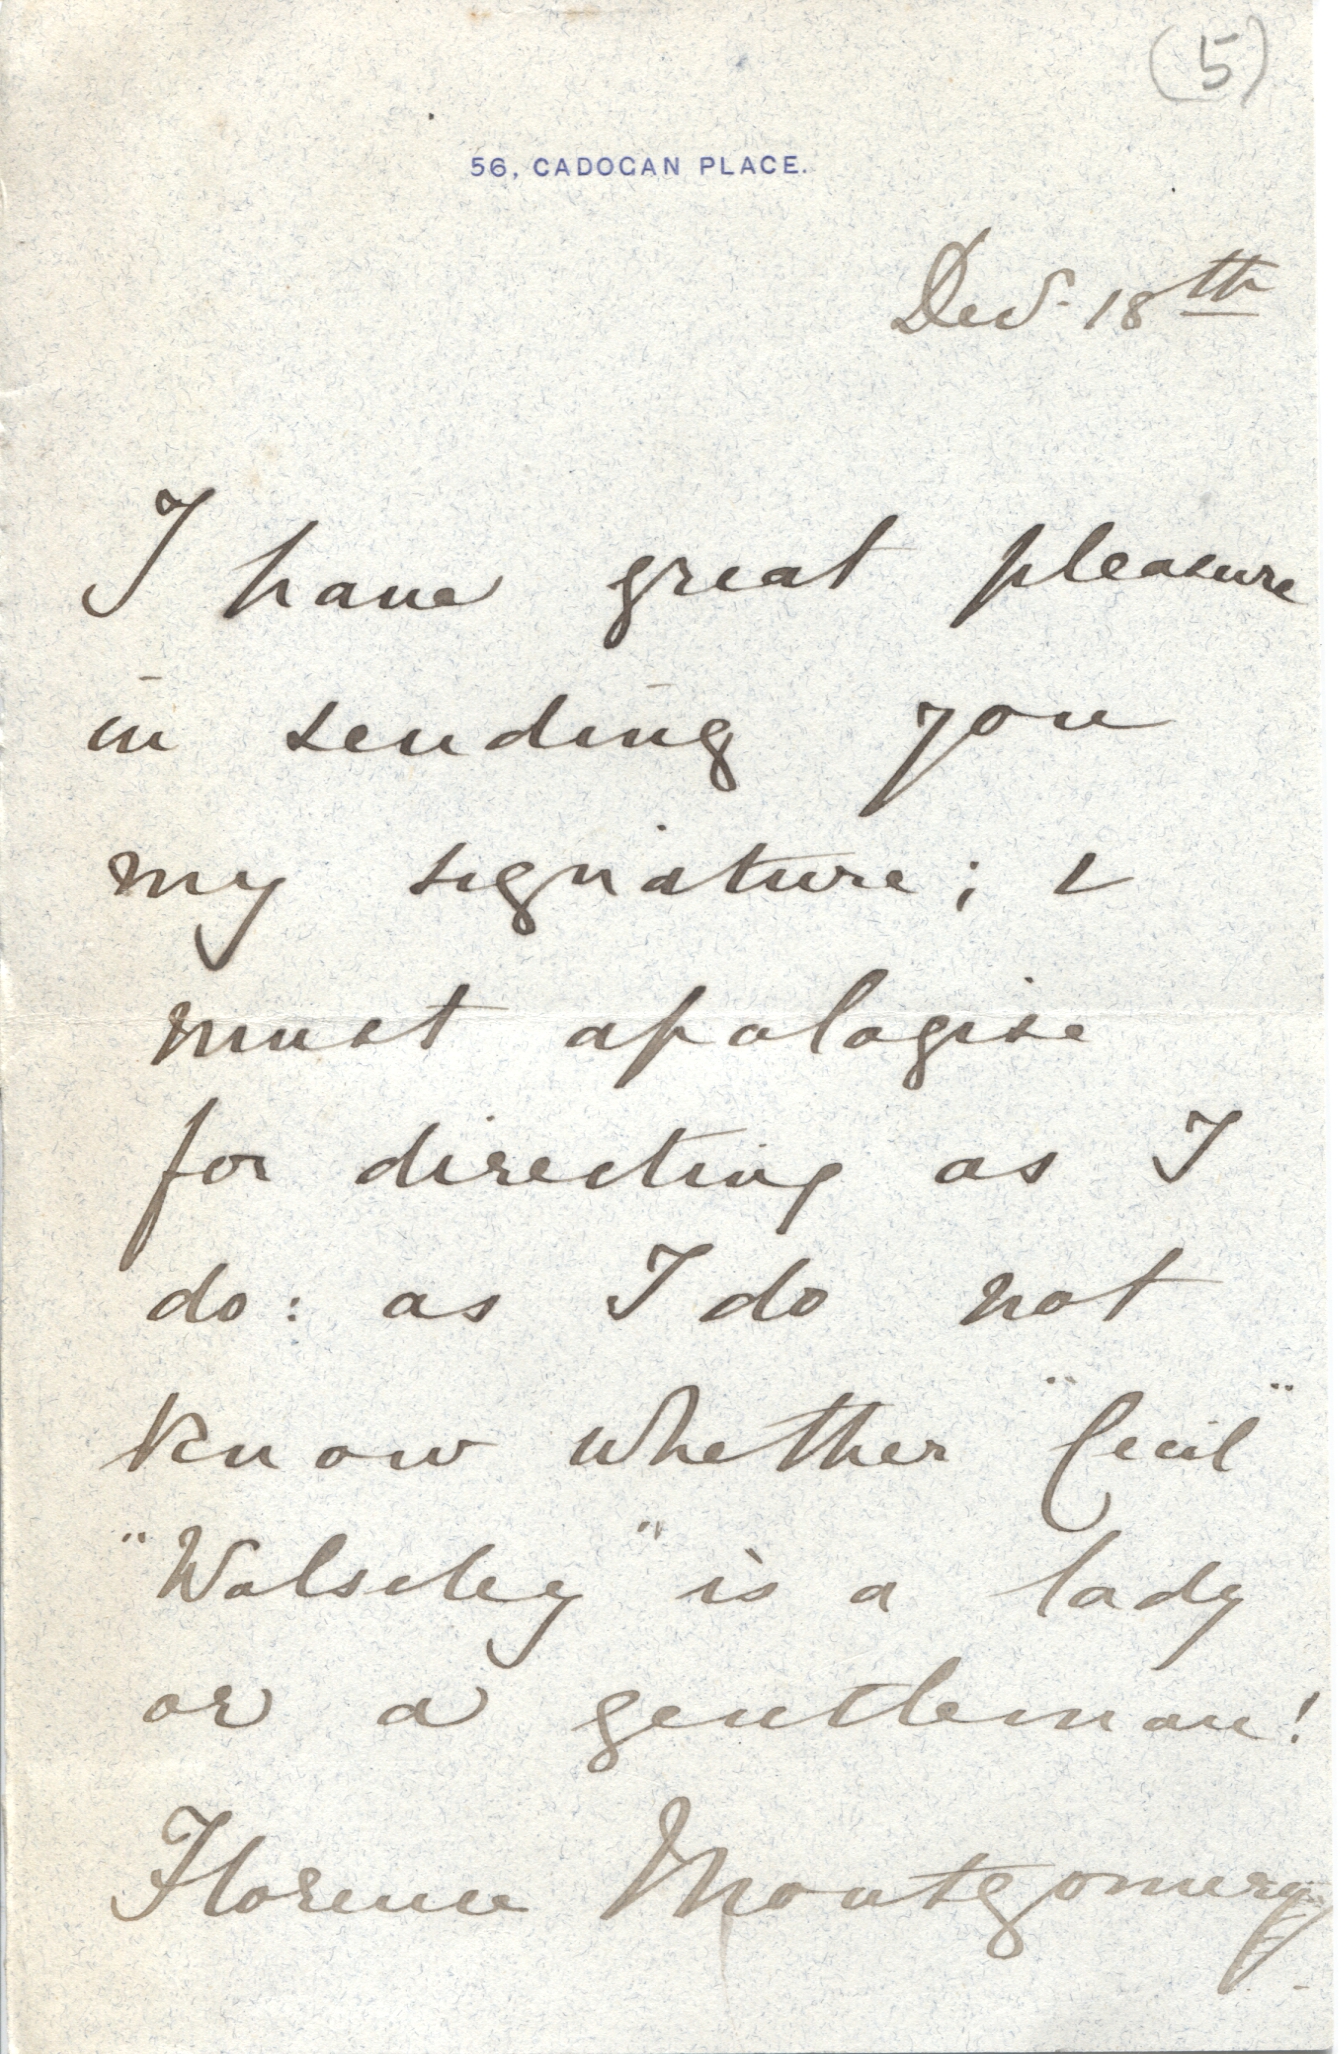 (5)
56, CADOGAN PLACE.
Dec. 18th
I have great pleasure
in sending you
my signature; &
must apologise
for directing as I
do: as I do not
know whether "Cecil"
"Wolseley" is a lady
or a gentleman!
Florence Montgomery